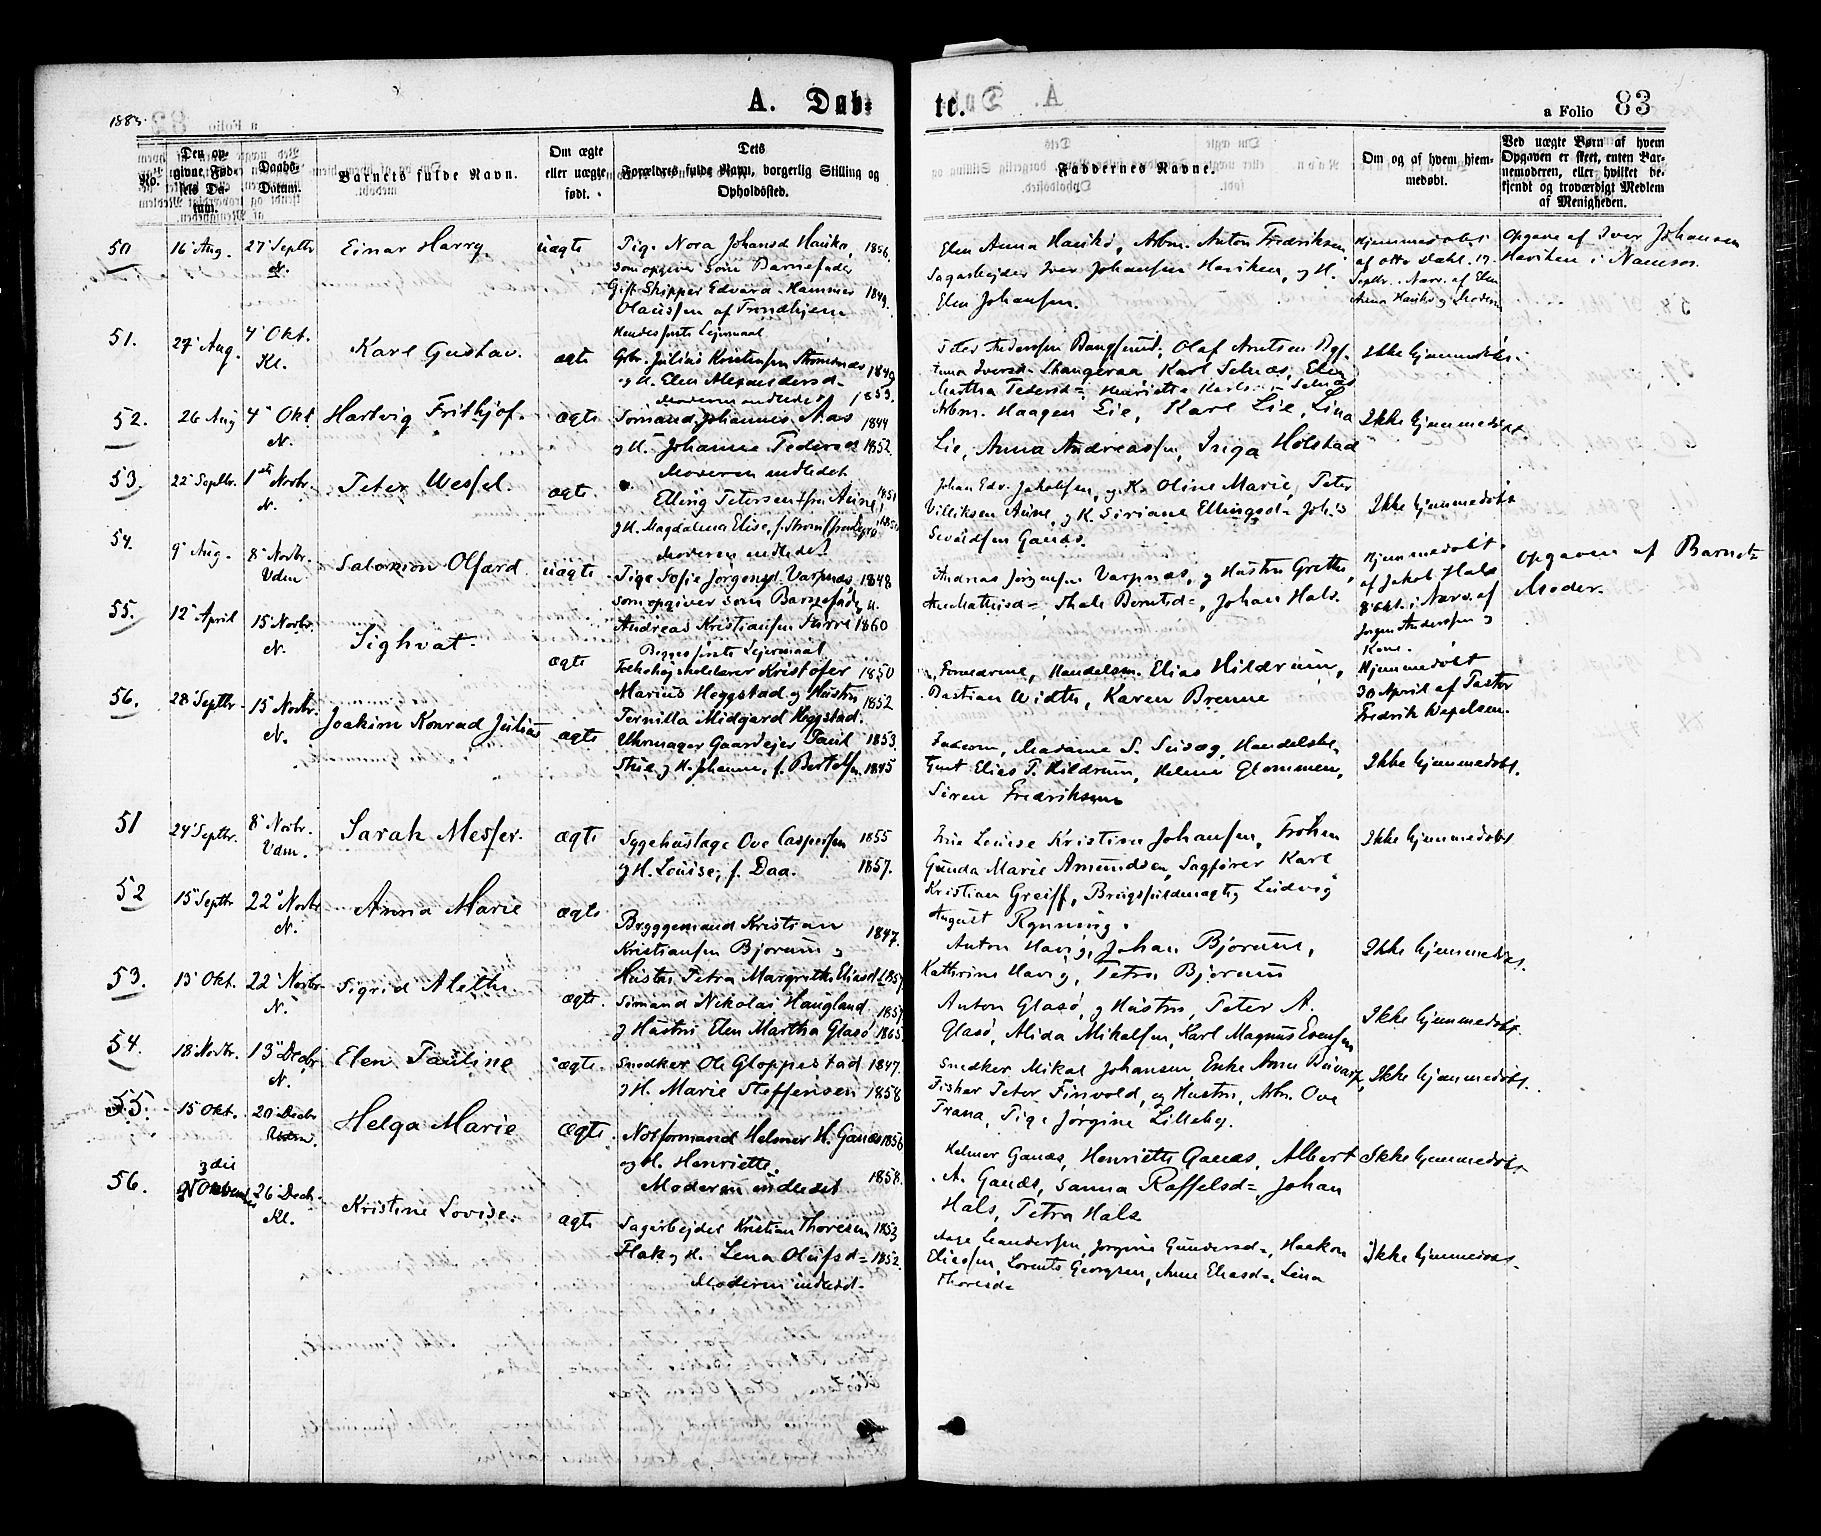 1885.
A. Dab=
te.
a Folio 83
No.
Den opgivne Fødsels Datum.
Daabs-Datum.
Barnets fulde Navn.
Om ægte eller uægte født.
Dets Forældres fulde Navn, borgerlig Stilling og Opholdssted.
Faddernes Navne.
Om og af hvem hjemmedøbt.
Ved uægte Børn af hvem Opgaven er skeet, enten Barnemoderen, eller hvilket bekjendt og troværdigt Medlem af Menigheden.
50 16 Aug. 27 Septbr Einar Harry. uægte
Pige Nora Johansd 1856.
som opgiver som Barnefader
Gift Skipper Edvard Hammer 1849.
Olaussen af Trondhjem
Hendes første Lejermaal
Elen Anna Havikø, Arbm. Anton Fredriksen
Sagarbejder Iver Johansen Haviken, og H.
Elen Johansen.
Hjemmedøbt
af Otto Dahl 17
Septbr. Nærv. af Elen
Anna Havikø og Moderen
Opgave af Iver Johansen
Haviken i Namsos
51. 27 Aug. 4 Okt. Kl. Karl Gustav. ægte
Gbr. Julius Kristensen 1849
og H. Elen Alexandersd=
Moderen indledet 1853.
Peter Andersen Bangsund, Olaf
Karl Selnæs, Elen
Martha Pedersd=, Henriette Selnæs
Ikke hjemmedøbt.
52. 26 Aug 4 Okt N. Hartvig Frithjof. ægte
Formand Johannes Aas 1844
og H. Johanna Pedersd 1852.
Moderen indledet
Arbm. Haagen Lie, Karl Lie, Lina
Lie, Anna Andreassen, Inga Holstad
Ikke hjemmedøbt.
53. 22 Septbr. 1 Novbr. N. Peter Wessel. ægte.
Elling Petersen 1851
og H. Magdalena Elise, f.
Moderen indledet
Johan Edv. Jakobsen, og K. Oline Marie, Peter
Villiksen Aune, og K. Siriane Ellingsd= Johs
Sivertsen Ganæs.
Ikke hjemmedøbt
54. 9 Aug. 8 Novbr. Vdm Salomon Olfard uægte.
Pige Sofie Jørgensd. Varpnæs, 1848
som opgiver som Barnefader
Andreas Kristiansen 1860
Begges første Lejermaal
Andreas Jørgensen Varpnæs, og Hustru Grethe,
Johan Hals.
Hjemmedøbt
af Jakob Hals
8 Okt. i Nærv. af
Jørgen Anderssen og
Kone.
Opgaven af Barnets
Moder.
55. 12 April 15 Novbr. N. Sighvat. ægte
Folkehøjskolelærer Kristofer 1850
Marius Heggstad og Hustru 1852
Pernilla Midgard Heggstad.
Forældrene, Handelsm. Elias Hildrum,
Bastian Width, Karen Brenne
Hjemmedøbt
30 April af Pastor
Fredrik Wexelsen.
56. 28 Septbr 15 Novbr. N. Joakim Konrad Julius ægte
Uhrmager Gaardejer Paul 1853
og H. Johanna, f. Bertelsen 1845
Faderen, Madame S. Sivæg, Handelsbe,
tjent Elias P. Hildrum, Helene Glommen,
Søren Fredriksen
Ikke hjemmedøbt.
51 24 Septbr. 8 Novbr. Vdm. Sarah Messer. ægte
Sygehuslæge Ove Caspersen 1855
og H. Louise, f. Daa. 1857.
Frue Louise Kristine Johansen, Frøken
Gunda Marie Amundsen, Sagfører Karl
Kristian Greiff, Brugsfuldmægtig Ludvig
August Rynning.
Ikke hjemmedøbt
52 15 Septbr 22 Novbr N. Anna Marie ægte
Bryggemand Kristian 1847.
Kristiansen Bjørum og
Hustru Petra Margrethe Eliasd 1857
Anton Havig, Johan Bjørum,
Kathrine Havig, Petra Bjørum
Ikke hjemmedøbt.
53. 13 Okt. 22 Novbr N. Sigrid Alethe ægte.
Sømand Nikolai Haugland, 1857
og Hustru Elen Martha Glasø 1865
Anton Glasø, og Hustru, Peter A.
Glasø, Alida Mikalsen, Karl Magnus Evensen
Ikke hjemmedøbt.
54. 18 Novbr. 13 Decbr N. Elen Pauline ægte.
Snedker Ole Gloppestad 1847.
og H. Marie Steffensen 1858
Snedker Mikal Johansen Enke Anne
Fisker Peter Finvold, og Hustru, Arbm. Ove
Trana, Pige Jørgine Lilleby.
Ikke hjemmedøbt.
55. 15 Okt. 20 Decbr Helga Marie ægte
Notformand Helmer H. Ganæs 1856
og H. Henriette. 1858.
Moderen indledet
Helmer Ganæs, Henriette Ganæs, Albert
A. Ganæs, Sanna Raffelsd=, Johan
Hals, Petra Hals
Ikke hjemmedøbt
56. 26 Decb. Kl. Kristine Lovise. ægte
Sagarbejder Kristian Thoresen 1853
Flak og H. Lena Olufsd= 1852.
Moderen indledt.
Aage Leandersen, Jørgine Gundersd=, Haakon
Eliassen, Lorents Georgsen, Anne Eliasd=, Lina
Thoresd=
Ikke hjemmedøbt.